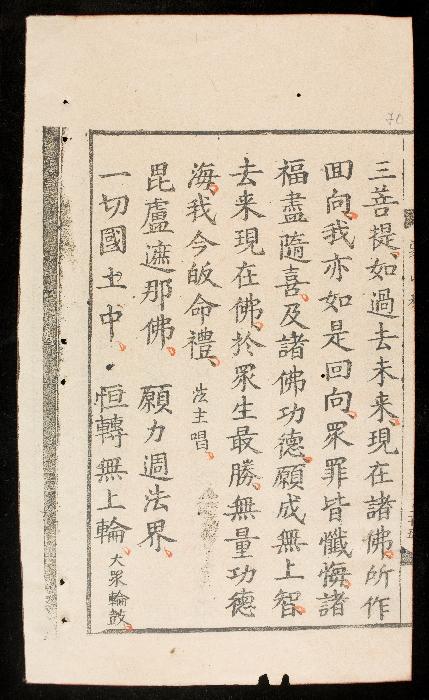 三菩提如過去未来現在諸佛所作
回向我亦如是回向眾罪皆懺悔諸
福盡隨喜及諸佛功德願成無上智
去来現在佛於眾生最勝無量功德
海我今皈命禮 法主唱
毘盧遮那佛 願力週法界
一切國土中 恒轉無上輪 大眾輪鼓
70